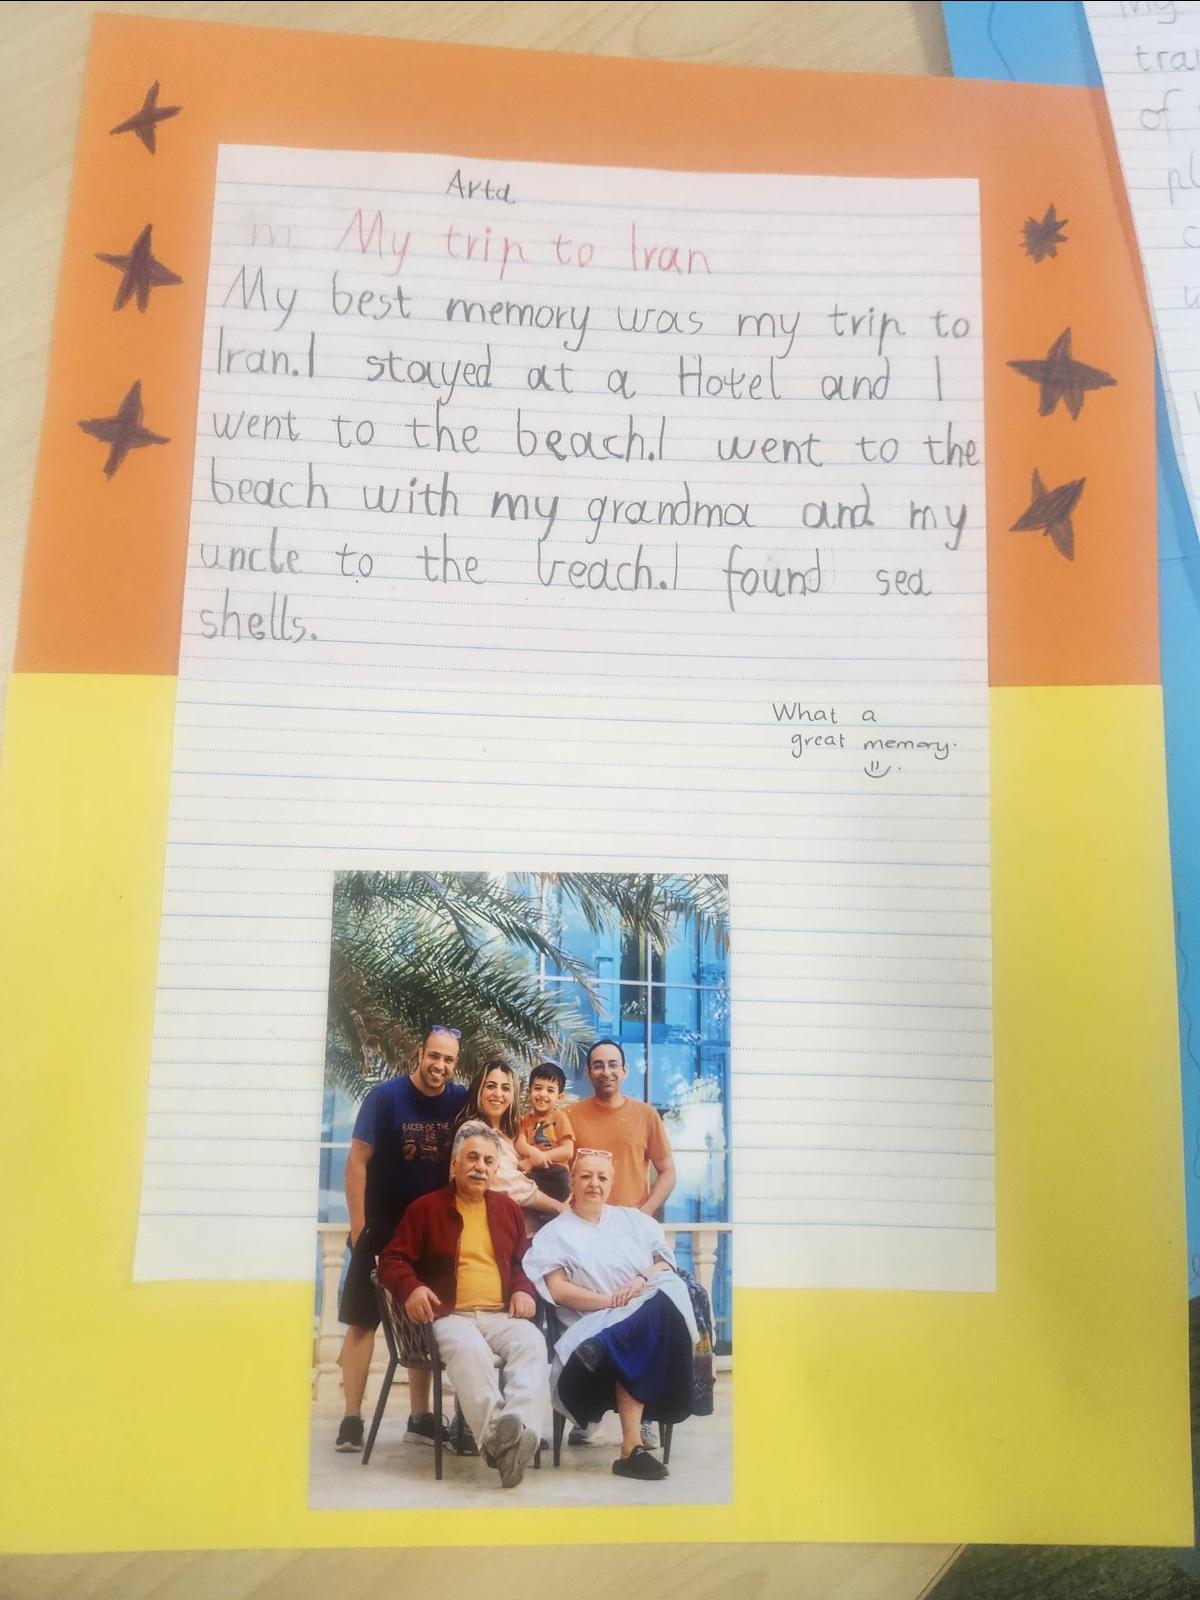 Arta
m My trip to Iran
My best memory was my trip to
Iran.I stayed at a Hotel and I
went to the beach.I went to the
beach with my grandma and my
uncle to the beach.I found sea
shells.
What a
great memory.
RACER OF THE
My
tra
of
pl
c